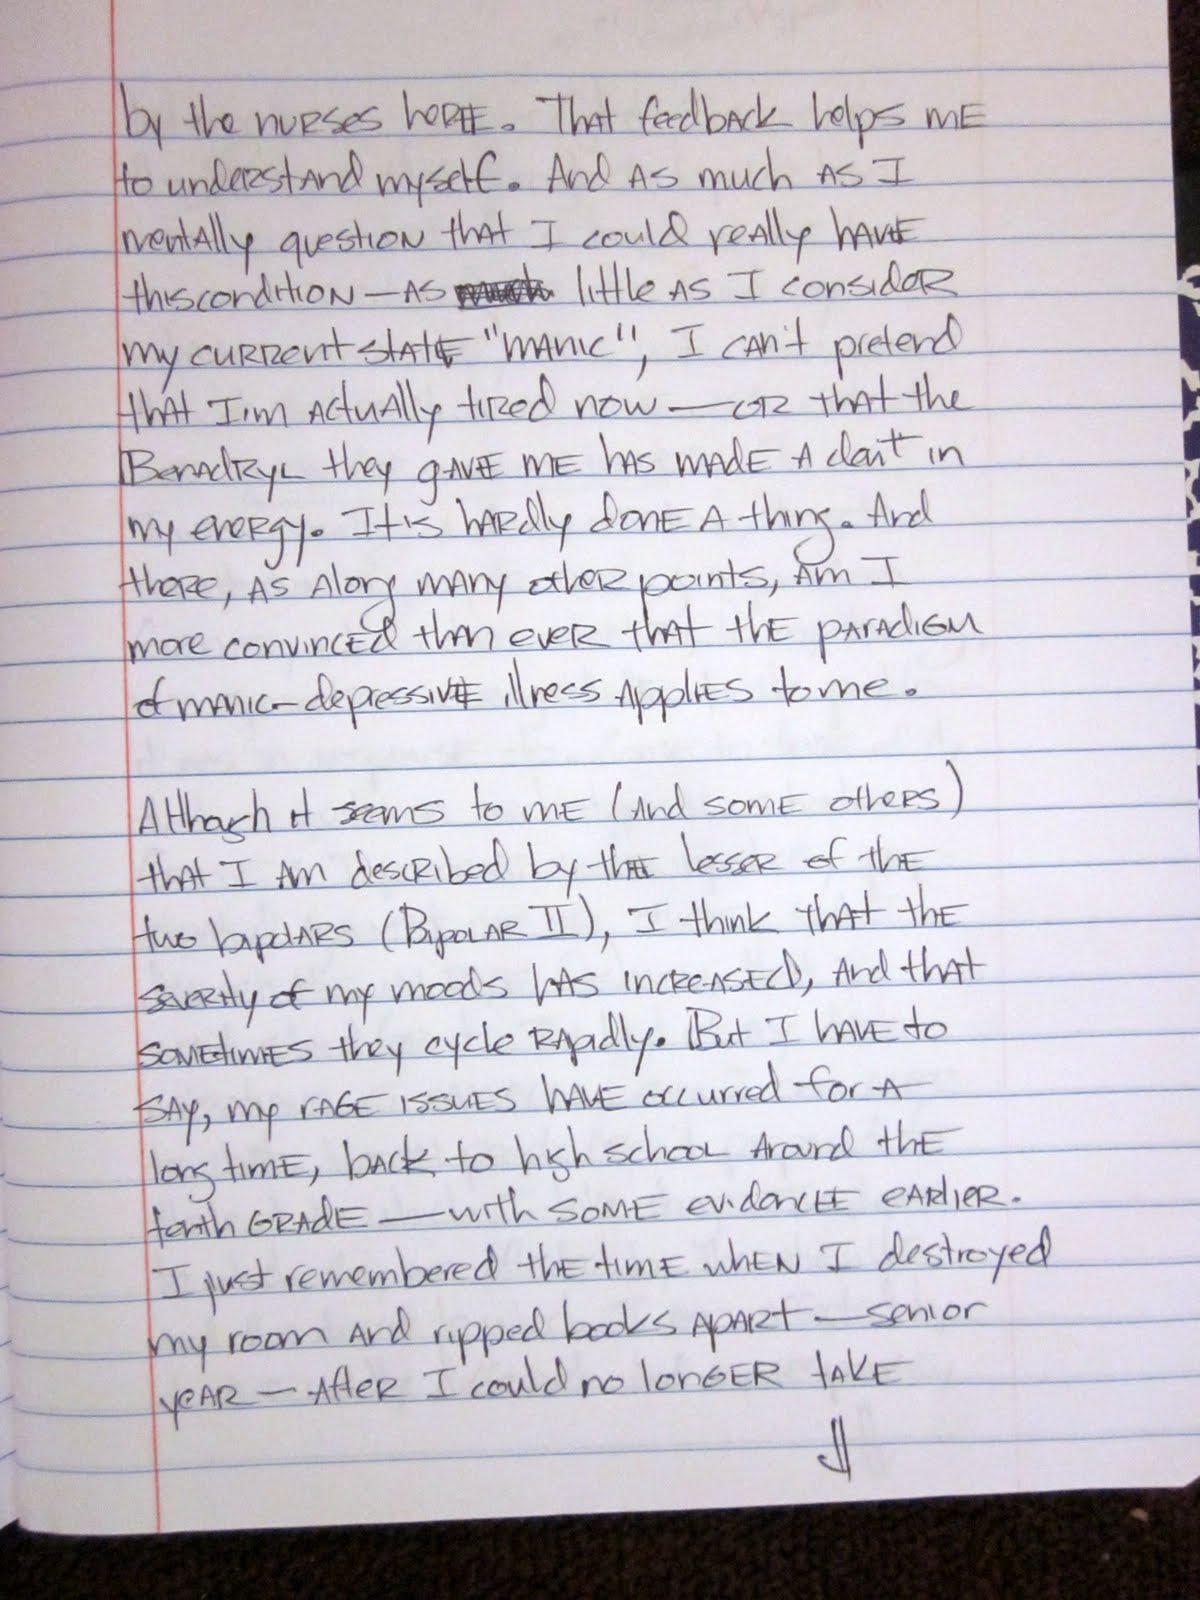 by the nurses here. That feedback helps me
to understand myself. And as much as I
mentally question that I could really have
this condition — as little as I consider
my current state "manic", I can't pretend
that I'm actually tired now — or that the
Benadryl they gave me has made a dent in
my energy. It's hardly done a thing. And
there, as along many other points, am I
more convinced than ever that the paradigm
of manic-depressive illness applies to me.
Although it seems to me (and some others)
that I am described by the lesser of the
two bipolars (Bipolar II), I think that the
severity of my moods has increased, and that
sometimes they cycle rapidly. But I have to
say, my rage issues have occurred for a
long time, back to high school around the
tenth grade — with some evidence earlier.
I just remembered the time when I destroyed
my room and ripped books apart — senior
year — after I could no longer take